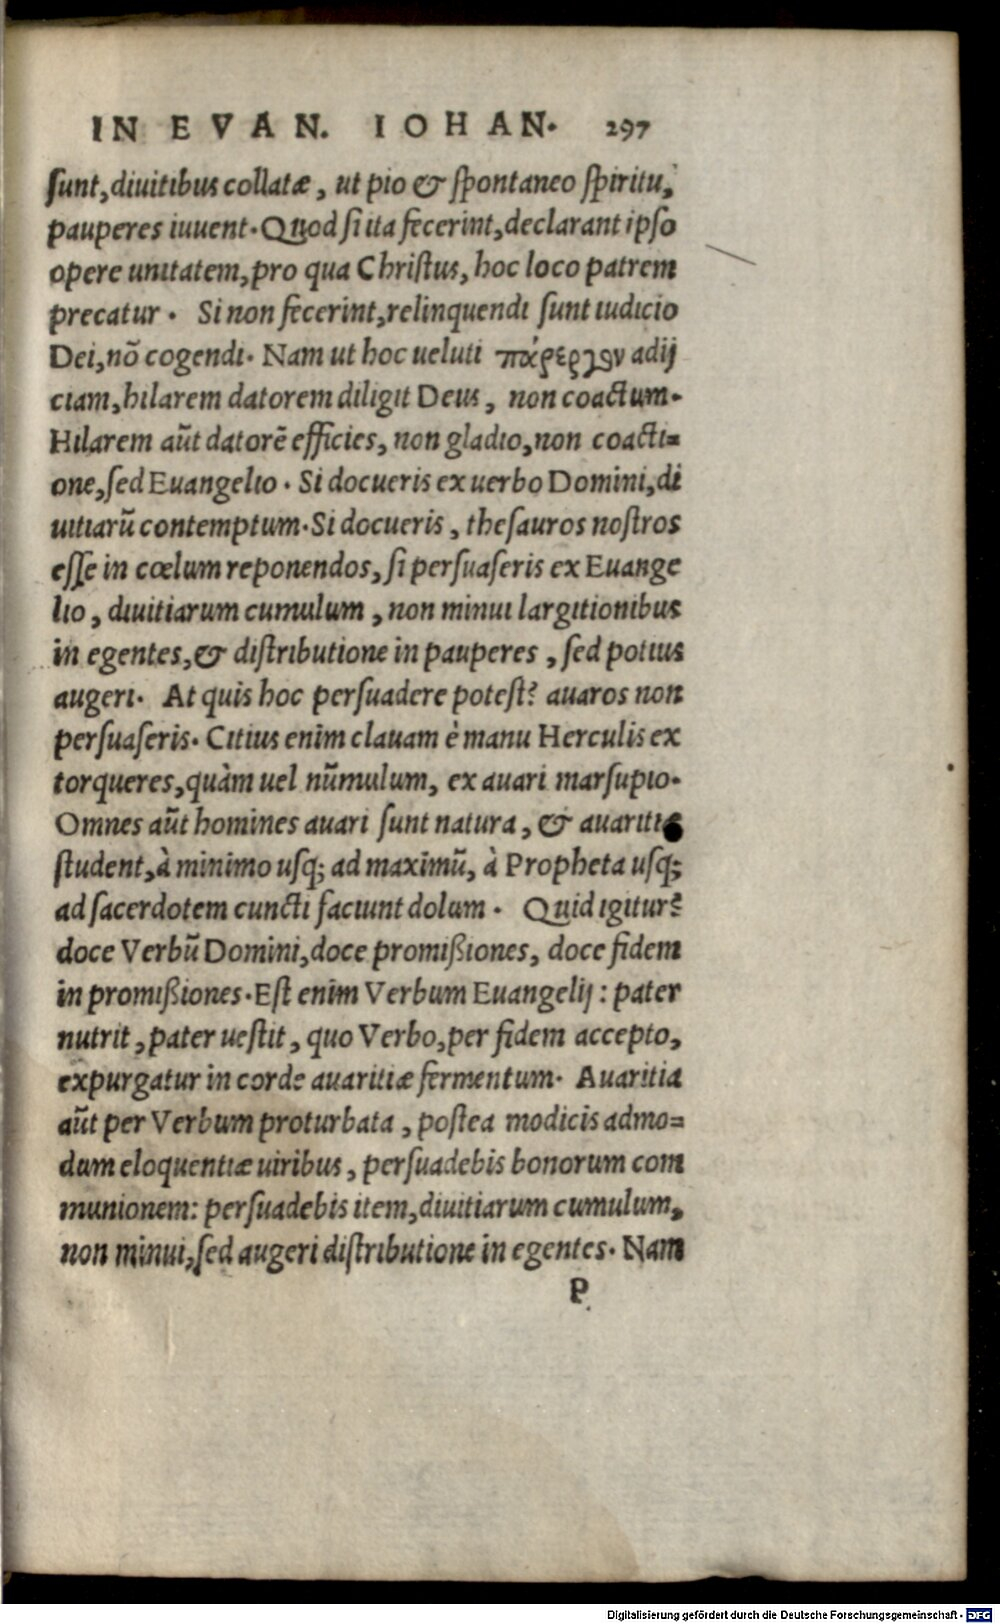 IN EVAN. IOHAN. 297
sunt, diuitibus collatæ, ut pio & spontaneo spiritu,
pauperes iuuent. Quod si ita fecerint, declarant ipso
opere unitatem, pro qua Christus, hoc loco patrem
precatur. Si non fecerint, relinquendi sunt iudicio
Dei, nō cogendi. Nam ut hoc ueluti πάρεργον adij
ciam, hilarem datorem diligit Deus, non coactum.
Hilarem aūt datorē efficies, non gladio, non coacti=
one, sed Euangelio. Si docueris ex uerbo Domini, di
uitiarū contemptum. Si docueris, thesauros nostros
esse in cœlum reponendos, si persuaseris ex Euange
lio, diuitiarum cumulum, non minui largitionibus
in egentes, & distributione in pauperes, sed potius
augeri. At quis hoc persuadere potest? auaros non
persuaseris. Citius enim clauam è manu Herculis ex
torqueres, quàm uel nūmulum, ex auari marsupio.
Omnes aūt homines auari sunt natura, & auaritiæ
student, à minimo usq; ad maximū, à Propheta usq;
ad sacerdotem cuncti faciunt dolum. Quid igitur?
doce Verbū Domini, doce promißiones, doce fidem
in promißiones. Est enim Verbum Euangelij: pater
nutrit, pater uestit, quo Verbo, per fidem accepto,
expurgatur in corde auaritiæ fermentum. Auaritia
aūt per Verbum proturbata, postea modicis admo=
dum eloquentiæ uiribus, persuadebis bonorum com
munionem: persuadebis item, diuitiarum cumulum,
non minui, sed augeri distributione in egentes. Nam
P
Digitalisierung gefördert durch die Deutsche Forschungsgemeinschaft - DFG